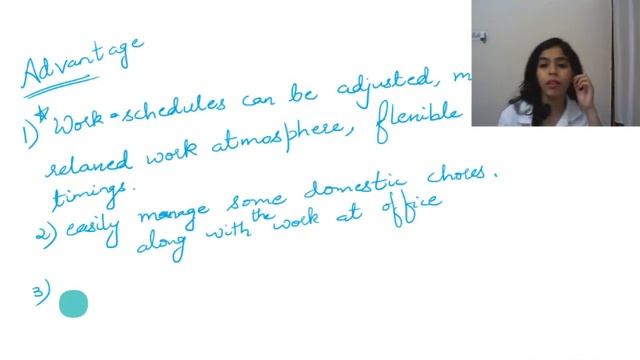 Advantage
1) * Work-schedules can be adjusted,
relaxed work atmosphere, flexible
timings.
2) easily manage some domestic chores.
along with the work at office
3)